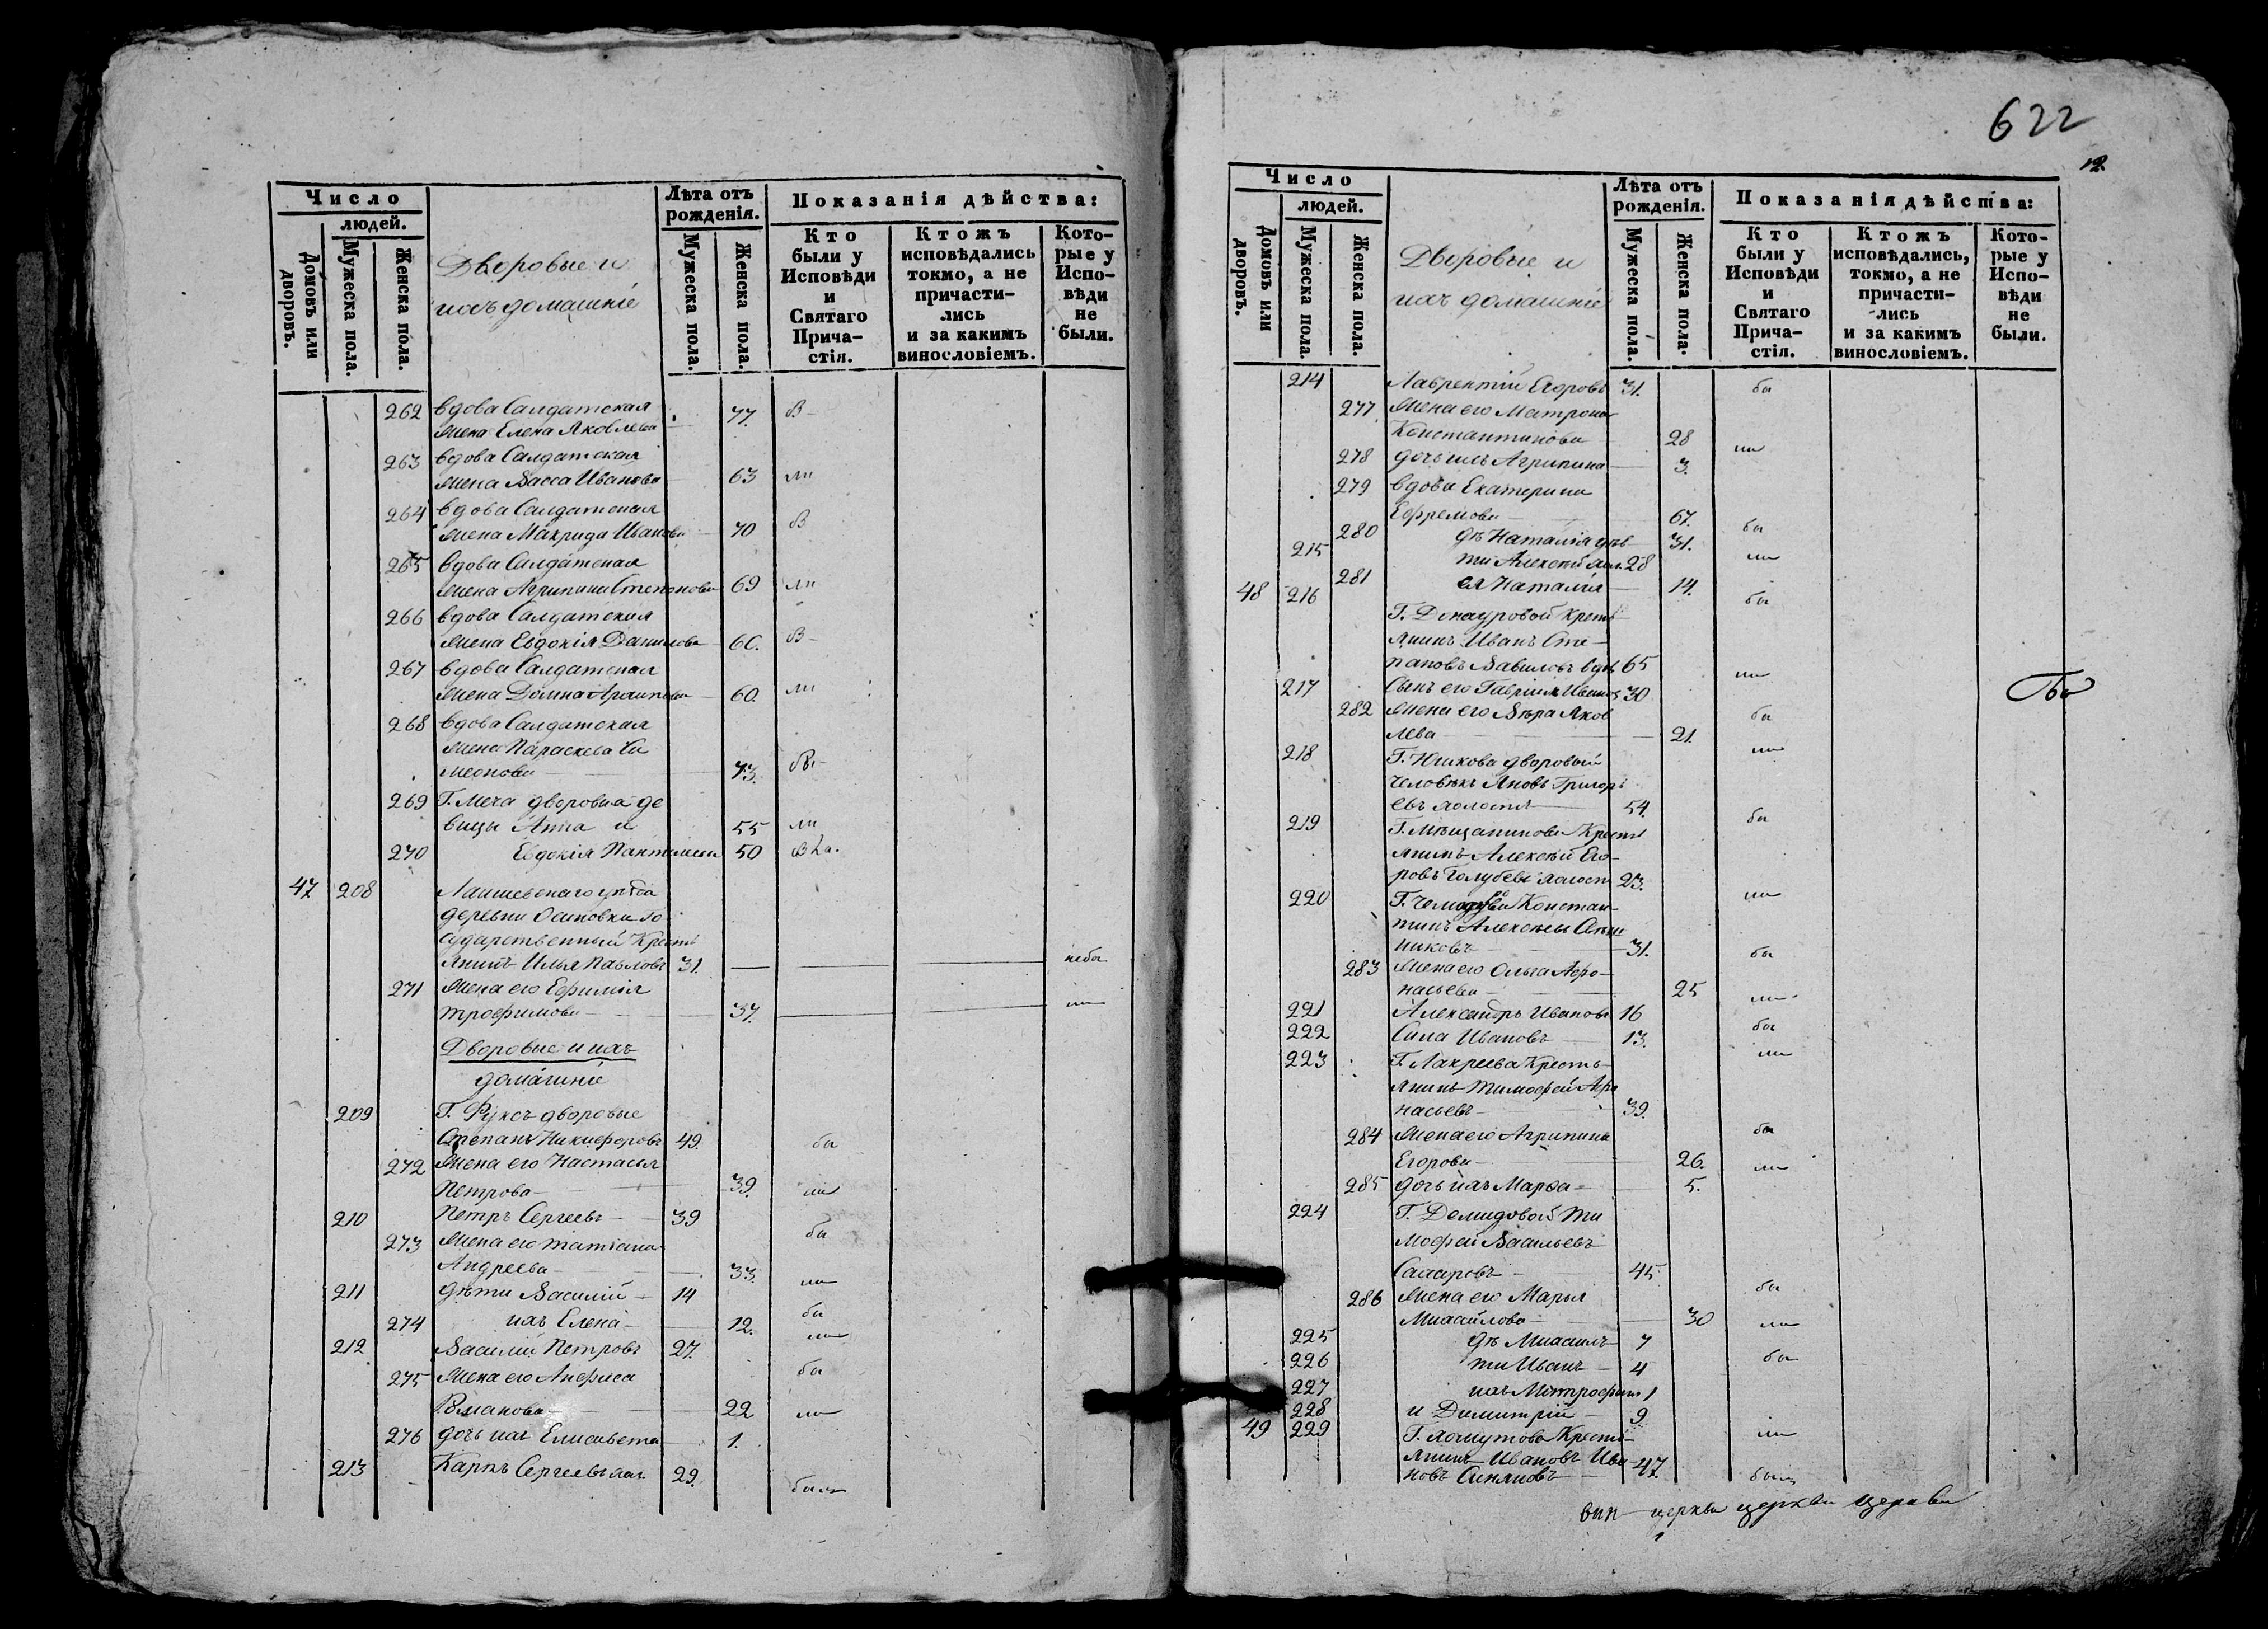 Число
людей.
Домовъ или дворовъ.
Мужеска пола.
Женска пола.
Дворовые и
ихъ домашніе
Лѣта отъ
рожденія.
Мужеска пола.
Женска пола.
Показанія дѣйства:
Кто
были у
Исповѣди
и
Святаго
Прича-
стія.
Ктожъ
исповѣдались
токмо, а не
причасти-
лись
и за какимъ
винословіемъ.
Кото-
рые у
Испо-
вѣди
не
были.
262 вдова Салдатская
жена Елена Яковлева 77.
263 вдова Салдатская
жена Васса Иванова 63 ли
264 вдова Салдатская
жена Макрида Иванова 70
265 вдова Салдатская
жена Агрипина Степонова 69 ли
266 вдова Салдатская
жена Евдокія Данилова 60.
267 вдова Салдатская
жена Домна 60. ли
268 вдова Салдатская
жена Параскева Си
меонова 73.
269 Г. Меча дворовыя де
вицы Анна и 55 ли
270 Евдокія 50
47 208 Лаишевскаго уѣзда
деревни Осиновки го
сударственный Кресть
янинъ Илья Павловъ 31. небы
271 жена его Ефимія
трофимова 37. ли
Дворовые и ихъ
домашніе
209 Г. Фуксъ дворовые
Степанъ Никифоровъ 49. бы
272 жена его Настасья
Петрова 39. ли
210 Петръ Сергеевъ 39 бы
273 жена его татіана
Андреева 33. ли
211 дѣти Василій 14 бы
274 ихъ Елена 12. ли
212 Василій Петровъ 27. бы
275 жена его Анфиса
Романова 22 ли
276 дочь ихъ Елисавета 1.
213 Карпъ Сергеевъ хол. 29. былъ
622
12.
Число
людей.
Домовъ или дворовъ.
Мужеска пола.
Женска пола.
Дворовые и
ихъ домашніе
Лѣта отъ
рожденія.
Мужеска пола.
Женска пола.
Показанія дѣйства:
Кто
были у
Исповѣди
и
Святаго
Прича-
стія.
Ктожъ
исповѣдались,
токмо, а не
причасти-
лись
и за какимъ
винословіемъ.
Кото-
рые у
Испо-
вѣди
не
были.
214 Лаврентій Егоровъ 31. бы
277 жена его Матрона
Константинова 28 ли
278 дочь ихъ Агрипина 3.
279 вдова Екатерина
Ефремова 67. бы
280 дѣ Наталія 31. ли
215 ти Алексѣй хол. 28
281 ея Наталія 14. бы
48 216 Г. Донауровой Кресть
янинъ Иванъ Сте-
пановъ Вавиловъ вдв 65 ли
217 Сынъ его Гавріилъ Ивановъ 30 бы
282 жена его Вѣра Яков
лева 21. ли
218 Г. Юшкова дворовый
человѣкъ Яковъ Григорь
евъ холостъ 54. бы
219 Г. Мѣщанинова Кресть
янинъ Алексѣй Его-
ровъ Голубевъ холост 23. ли
220 Г. Констан
тинъ Алексѣевъ
никовъ 31. бы
283 жена его Ольга Афо-
насьева 25 ли
221 Александръ Ивановъ 16 бы
222 Сила Ивановъ 13. ли
223 Г. Лакреева Кресть-
янинъ Тимофей Афа
насьевъ 39. бы
284 жена его Агрипина
Егорова 26. ли
285 дочь ихъ Марѳа 5.
224 Г. Демидовой Ти
мофей Васильевъ
45 бы
286 жена его Марья
Михайлова 30 ли
225 дѣ Михаилъ 7 бы
226 ти Иванъ 4
227 ихъ Митрофанъ 1
228 и Димитрій 9 ли
49 229 Г. Крестья
янинъ Ивановъ Ива
новъ 47. былъ
церкви церкви церкви